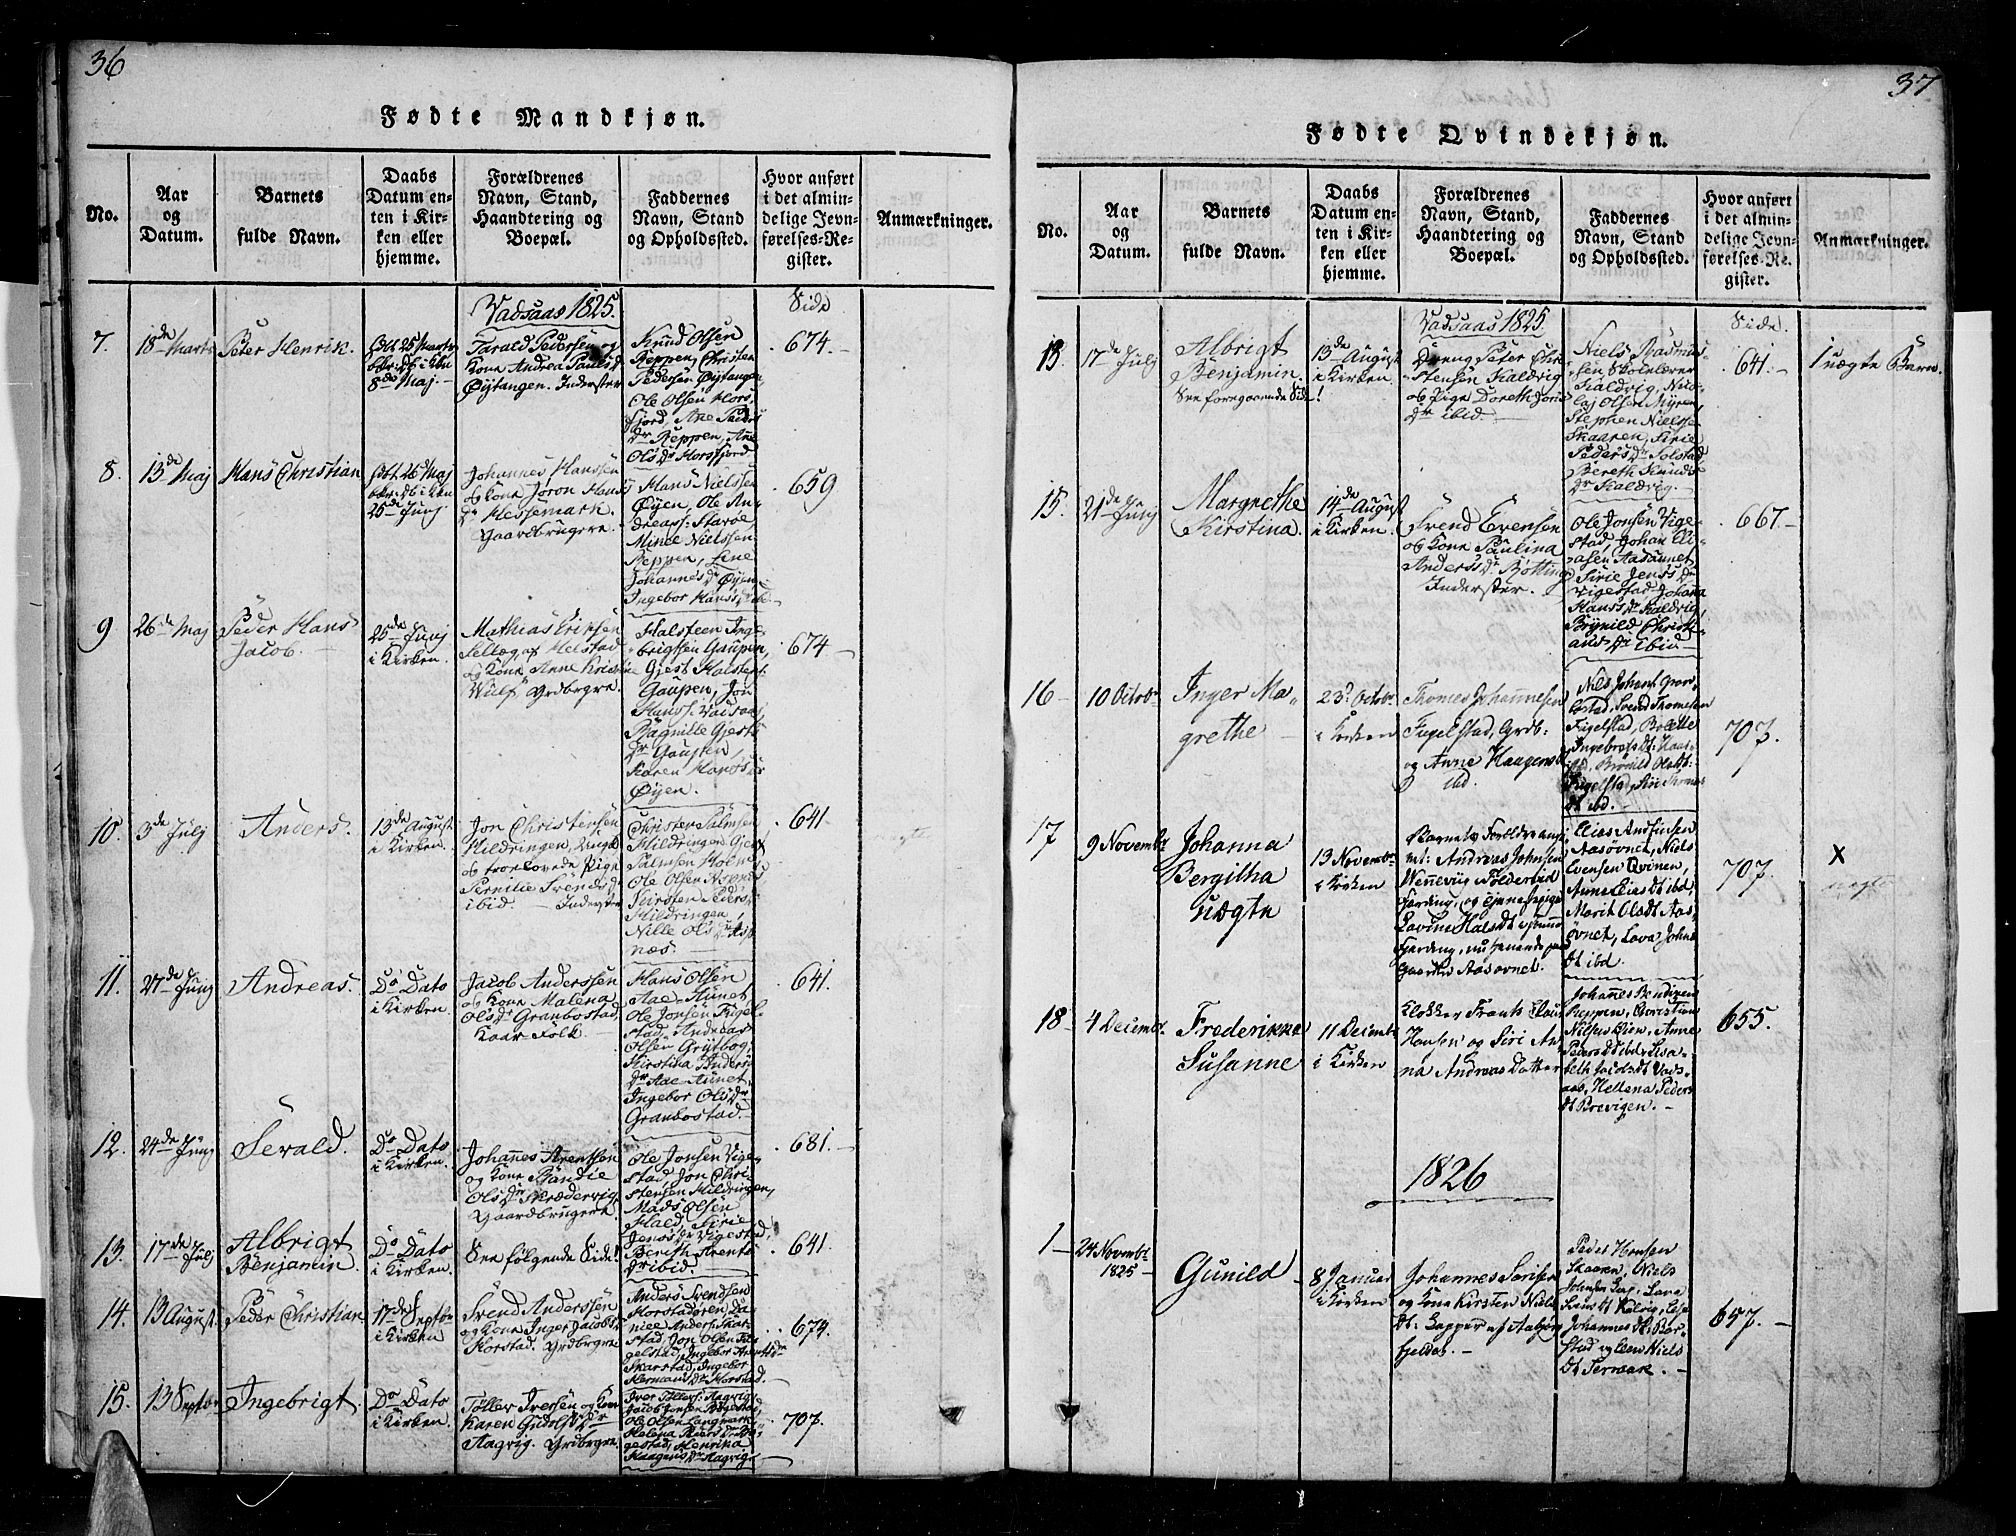 36
Fødte Mandkjøn.
No.
Aar
og
Datum.
Barnets
fulde Navn.
Daabs
Datum en-
ten i Kir-
ken eller
hjemme.
Forældrenes
Navn, Stand,
Haandtering og
Boepæl.
Faddernes
Navn, Stand
og Opholdssted.
Hvor anført
i det almin-
delige Jevn-
førelses-Re-
gister.
Anmærkninger.
Vadsaas 1825.
Side
7.
18de Marts
Peter Henrik.
8de Maj.
Tarald Pedersen og
Kone Andrea Pauls Dr
Øijtangen. Inderster
Knud Olsen
Reppen, Christen
Pedersen Øijtangen
Ole Olsen Hors-
fjord, Ane Peders
Dr Reppen, Ane
Ols Dr Horsfjord
674.
8.
13de Maj
Hans Christian
25de Junj
Johannes Hanssen
og Kone Jøron Hans
Dr Hessemark.
Gaardbrugere.
Hans Nielssen
Øyen, Ole An-
dreass: Staroe
Minde Nielssen
Reppen, Lene
Johannes Dr Øyen
Ingebor Hans Dr ibd
659
9
26de Maj
Peder Hans
Jacob.
25de Junj
i Kirken.
Mathias Eriksen
Sellæg af Helstad
og Kone Anne Kristine
Wulf Grdbrgre.
Halsteen Inge-
brigtsen Gaupen,
Gjest Halsteens:
Gaupen, Jon
Hanss. Vadsaas,
Ragnille Gjests
Dr Gaupen,
Karen Hans Dr
Øyen.
674
10.
3de Julj
Anders.
13de August
i Kirken.
Jon Christensen
Hildringen, Ungk.
og trolovede Pige
Pernille Svends Dr
ibid — Inderster
Christen Salmsen
Hildringen, Gjest
Salmsen Holm
Ole Olsen
Kirsten Peders
Hildringen,
Nille Ols Dr
næs.
641
11.
27de Junj
Andreas.
Do Dato
i Kirken.
Jacob Anderssen
og Kone Malena
Ols Dr Granbostad.
Kaar-Folk.
Hans Olsen
Aae-Aunet
Ole Jonsen Figel-
stad, Andreas
Olsen Grytbog
Kirstina Anders
Dr Aae-Aunet,
Ingebor Ols Dr
Granbostad.
641.
12.
24de Junj
Sevald.
Do Dato
i Kirken.
Johannes Arentsen
og Kone Randie
Ols Dr Skrædervig,
Gaardbrugere.
Ole Jonsen Vige-
stad, Jon Chri-
stensen Hildringen,
Mads Olsen
Hald, Sirie
Jens Dr Vigestad,
Berith Arents
Dr ibid.
681.
13.
17de Julj
Albrigt
Benjamin.
Do Dato
i Kirken.
See følgende Side!
641.
14.
13 August.
Peder Christian
17de Septbr
i Kirken
Svend Anderssen
og Kone Inger Jacobs Dr
Horstad. Grdbrgre
Anders Svendsen
Horstadøren, Da-
niel Anders: Skar-
stad, Jon Olsen Fu-
gelstad, Ingebor Arents Dr
Skarstad, Ingebor
Hermans Dr Horstad.
674.
15.
13 Septbr
Ingebrigt.
Do Dato
i Kirken.
Toller Iversen og Kone
Karen Gudolfs Dr
Aagvig. Grdbrgre.
Iver Tollers: Aagvig,
Jacob Jonsen Bøgestad
Ole Olsen Langmark,
Helena Peders Dr Bø-
gestad, Henrika
Haagens Dr Aagvig.
707.
37
Fødte Qvindekjøn.
No.
Aar
og
Datum.
Barnets
fulde Navn.
Daabs
Datum en-
ten i Kir-
ken eller
hjemme.
Forældrenes
Navn, Stand,
Haandtering og
Boepæl.
Faddernes
Navn, Stand
og Opholdssted.
Hvor anført
i det almin-
delige Jevn-
førelses-Re-
gister.
Anmærkninger.
Vadsaas 1825.
Side.
13.
17de Julj
Albrigt
Benjamin.
See foregaaende Side!
13de August
i Kirken.
Dreng Peter Chri-
stensen Kaldvig
og Pige Doreth
Dr ibid.
Niels Rasmus-
sen Skolelærer
Kaldvig, Nico-
laj Olsen Myren,
Stephen Nielss:
Skaaren, Sirie
Peders Dr Solstad
Bereth Knuds
Dr Kaldvig.
641.
1 uægte Barn.
15.
21de Junj
Margrethe
Kirstina.
14de August
i Kirken.
Svend Evensen
og Kone Paulina
Anders Dr Bøtting
Inderster.
Ole Jonsen Vige-
stad, Johan Eli-
asen Aasaunet
Sirie Jens Dr
Vigestad, Johana
Hans Dr Kaldvig,
Brynild Christi-
ans Dr ibid.
667.
16
10 Octobr
Inger Ma-
grethe
23 Octobr
i Kirken
Thomes Johannesen
Fugelstad, Grdb:
og Anne Haagensd
ibd.
Nils Johans Gran-
bostad, Svend Thomesen
Fugelstad, Bolette
Ingebrotsdt:
Fugelstad, Siri Thomes
dt ibd.
707.
17
9 Novembr
Johanna
Bergitha
uægte
13 Novembr
i Kirken
Barnets Forældre ang:
Andreas Johnsen
Fjerding, nu tienende paa
gaarden Aasøvnet.
Elias Andfinsen
Aasøvnet, Niels
Evensen Qvinen,
Anne Elias dt ibd
Marit Olsdt Aas-
øvnet, Lava Johns
dt ibd.
707.
x
uægte
18
4 Decembr.
Frederikke
Susanne
11 Decembr
i Kirken
Klokker Frants Claus
Hansen og Siri An-
na Andreas Datter
Johannes Bendixen
Reppen, Christian
Nilsen Øien, Anne
Pedersdt ibd, Elisa-
beth Jacobsdt Vads-
aas, Hellena Peders
dt Brevigen.
655.
1826
1
24 Novembr
1825
Gunild
8 Januar
i Kirken
Johannes Sørisen
og Kone Kirsten Niels
dt: Lapper af Aabjørg
fjeldet.
Peder Hansen
Skaaren, Niels
Johannes dt: Bar-
stad og Leen Niels
dt Terraak.
657.